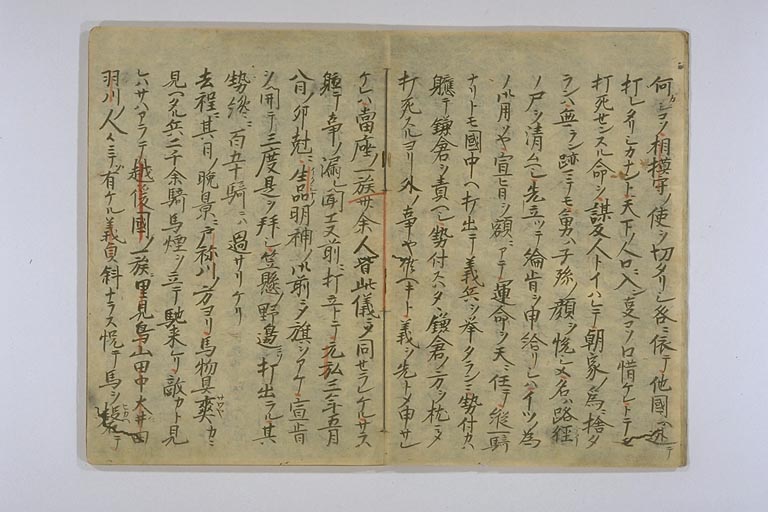 何カシコノ相模守ノ使ヲ切タリシ咎ニ依テ他國ヘ迯テ
打レタリシカナント天下ノ人口ニ入ン事コソ口惜ケレトテモ
打死センスル命ヲ謀叛人トイハレテ朝家ノ為ニ捨タ
ランハ無ラン跡ミテモ勇ハ子孫ノ顔ヲ悦シメ名ハ路径
ノ戸ヲ清ムヘシ先立ツテ綸旨ヲ申給リシハイツノ為
ノ御用ソヤ宣旨ヲ額ニアテ運命ヲ天ニ任テ縦一騎
ナリトモ國中ヘ打出テ義兵ヲ挙タランニ勢付カハ
軈テ鎌倉ヲ責ヘシ勢付スハタヽ鎌倉ノ方ヲ枕ニメ
打死スルヨリ外ノ事ヤ有ヘキト義ヲ先トメ申サレ
ケレハ當座ノ一族廿余人皆此儀ニメ同セラレケルサラ
軈テ事ノ漏レ聞エヌ前ニ打立トテ元弘三年五月
八日ノ卯尅ニ生品明神ノ御前ニメ旗ヲアケ宣旨
ヲ開テ三度是ヲ拝シ笠懸ノ野邉ヘ打出ラル其
勢終ニ百五十騎ニハ過サリケリ
去程ニ其日ノ晩景ニ戸祢川ノ方ヨリ馬物具爽カニ
見ヘタル兵二千余騎馬煙ヲ立テ馳来レリ敵カト見
ヒハサハアラテ越後國ノ一族ニ里見鳥山田中大井田
羽川ノ人々ニテ有ケル義貞斜ナラス悦テ馬ヲ控ヘテ